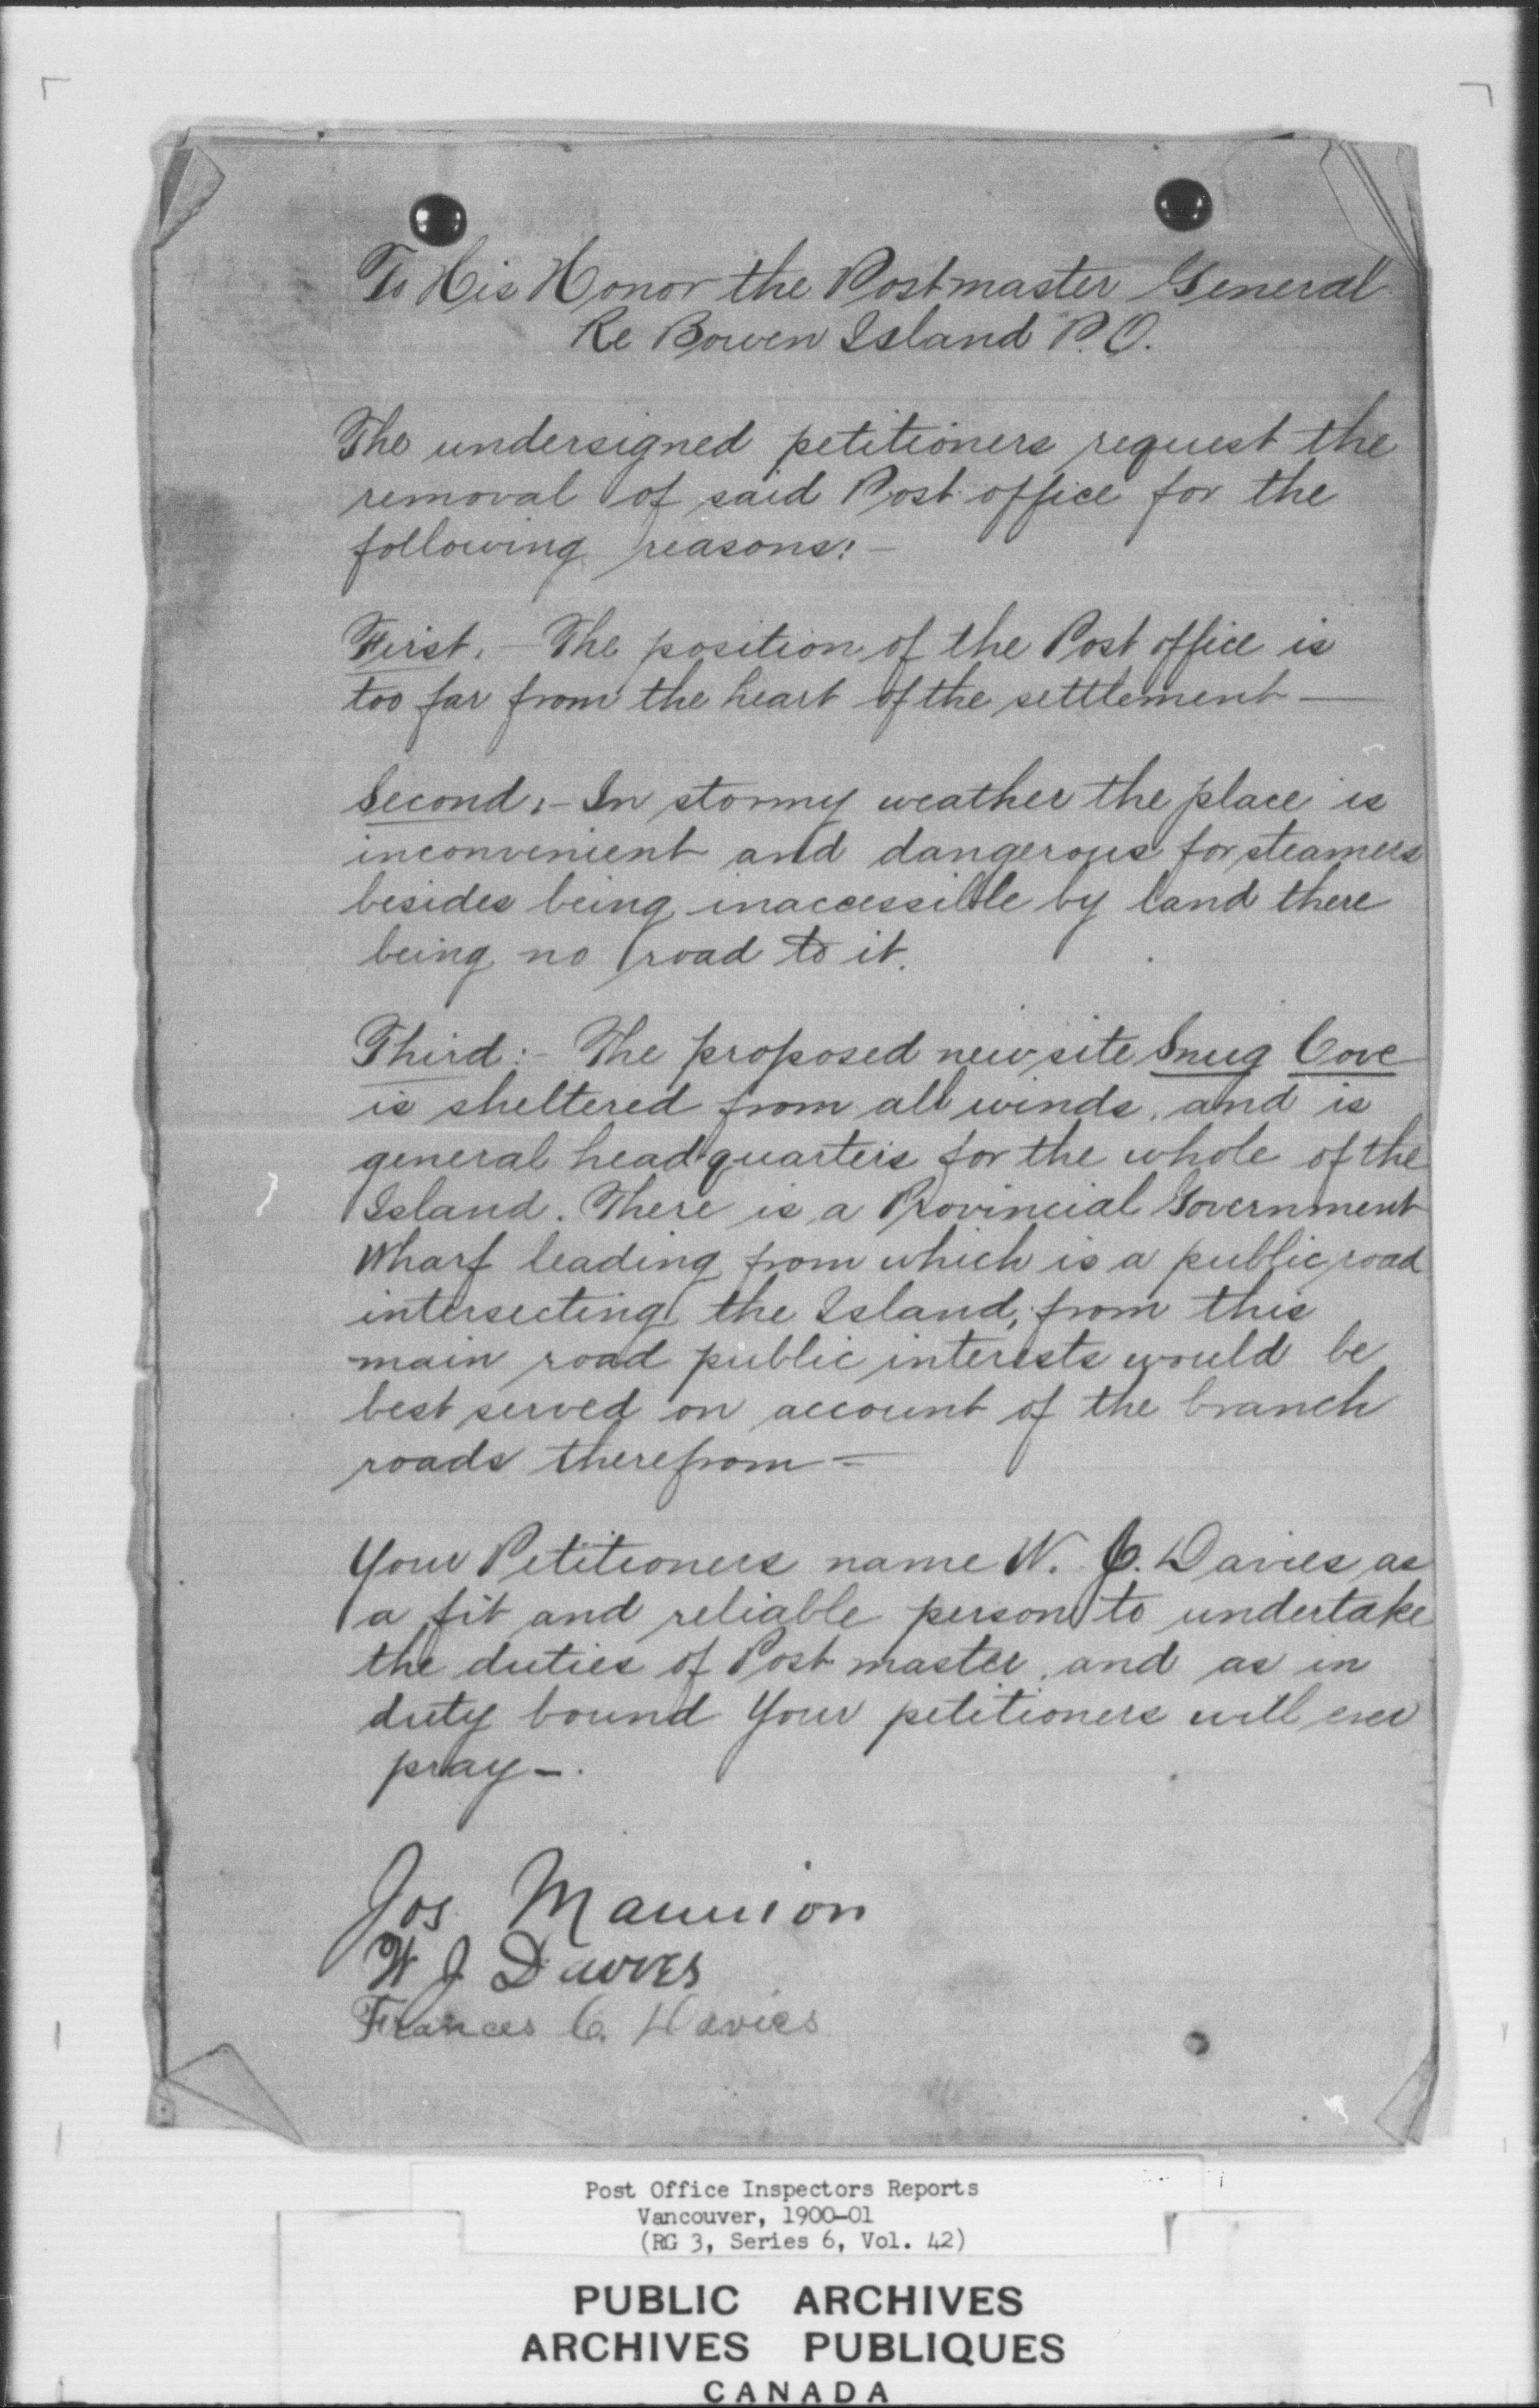 To His Honor the Postmaster General
Re Bowen Island P.O.
The undersigned petitioners request the
removal of said Post office for the
following reasons:-
First. - The position of the Post office is
too far from the heart of the settlement —
Second:- In stormy weather the place is
inconvenient and dangerous for steamers
besides being inaccessible by land there
being no road to it.
Third:- The proposed new site Snug Cove
is sheltered from all winds, and is
general headquarters for the whole of the
Island. There is a Provincial Government
Wharf leading from which is a public road
intersecting the Island, from this
main road public interests would be
best served on account of the branch
roads therefrom —
Your Petitioners name W. J. Davies as
a fit and reliable person to undertake
the duties of Post master, and as in
duty bound Your petitioners will ever
pray —.
Jos Mannion
W J Davies
Frances C. Davies
Post Office Inspectors Reports
Vancouver, 1900-01
(RG 3, Series 6, Vol. 42)
PUBLIC ARCHIVES
ARCHIVES PUBLIQUES
CANADA